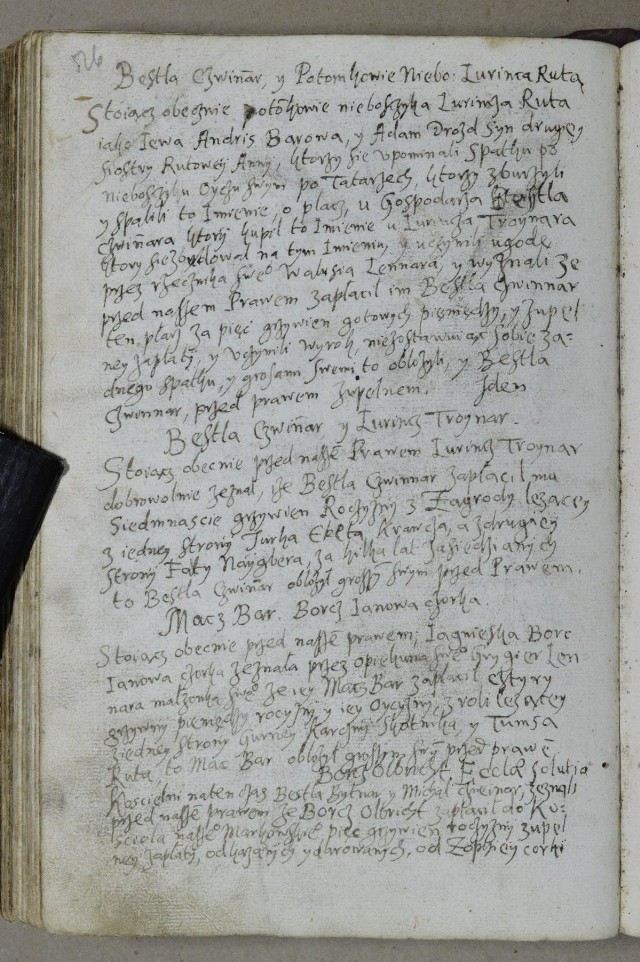 526
Bestla Czwinar, y Potomkowie Niebo: Lurinca Ruta
Stoiącz obecznie potōkowie nieboszyka Lurincza Ruta
iako Iewa Andris Barowa, y Adam Drozd Syn drugey
siostry Rutowey Anny, ktorzy sie upominali Spatku po
Nieboszyku Oyczu swym po Tatarzech, ktorzy zburzyli
y spalili to Imienie, o placz, u Gospodarza Bestla
Czwinara ktory kupil to Imienie u Lurincza Troynara
ktory sie zbudowal na tym Imieniu, y uczynili ugode
przez rzecznika sweo Walusia Lennara, y wyznali ze
przed nassem Prawem zaplacil im Bestla Czwinnar
ten placz za pięc grzywien gotowych pieniędzy, y zupel
ney zaplaty, y uczynili wyrok, niezostawuiącz Sobie za-
dnego spatku, y grosami swemi to oblozyli, y Bestla
Czwinnar, przed prawem zupelnem. Iden
Bestla Czwinar y Lurincz Troynar.
Stoiącz obecnie przed nassē Prawem Lurincz Troynar
dobrowolnie zeznal, ize Bestla Czwinnar zaplacil mu
Siedmnascie grzywien Roczyzny z Zagrody lezacey
z iedney strony Jurka Krawcza, a z drugiey
Strony Faty Naygbera, za kilka lat zasiedzianych
to Bestla Czwinar oblozyl grossy swym przed Prawem.
Macz Bar. Borcz Ianowa czorka.
Stoiącz obecnie przed nassē prawem, Iagnieska Borc
Ianowa czorka zeznala przez opiekuna sweo Grygier Len-
nara malzonka sweo ze iey Macz Bar zaplacil cztyry
grzywny pieniędzy roczyzny iey Oyczyzny, z roli lezacey
z iedney strony Gurney Karczmy Skotnika, y Tumsa
Ruta, to Mac Bar oblozyl grossym swy przed prawē.
Borcz Olbricht Eccla Solutia
Kascielni naten czas Bestla Bytnar y Michal Czweinar, zeznali
przed nassē prawem ze Borcz Olbricht zaplacil do Ko-
sciola nasseo Markowskie piec grzywien roczyzny zupel
ney zaplaty, odkazanych y darowanych, od Zophiey corki